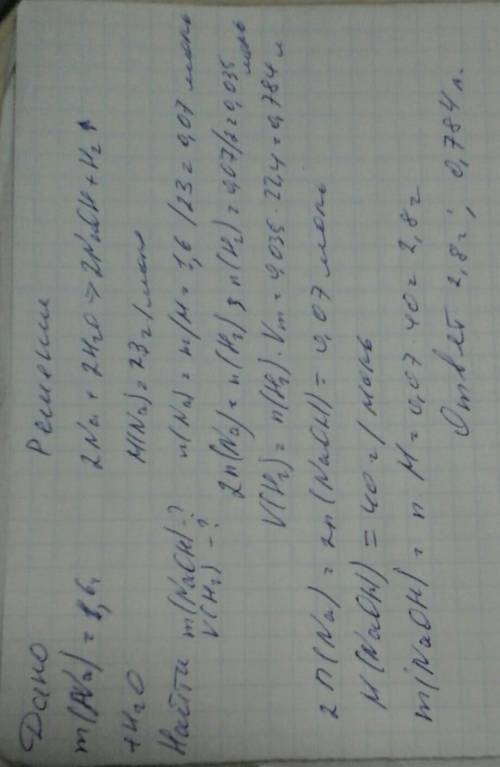 Дано
m(Na) = 1,6г
+ H2O
Найти m(NaOH)-?
V(H2) -?
Решение
2Na + 2H2O → 2NaOH + H2↑
M(Na) = 23 г/моль
n(Na) = m/M = 1,6/23 = 0,07 моль
2n(Na) = n(H2) n(H2) = 0,07/2 = 0,035 моль
V(H2) = n(H2) · Vm = 0,035 · 22,4 = 0,784 л
2n(Na) = 2n(NaOH) = 0,07 моль
M(NaOH) = 40 г/моль
m(NaOH) = n · M = 0,07 · 40 = 2,8 г
Ответ 2,8 г; 0,784 л.